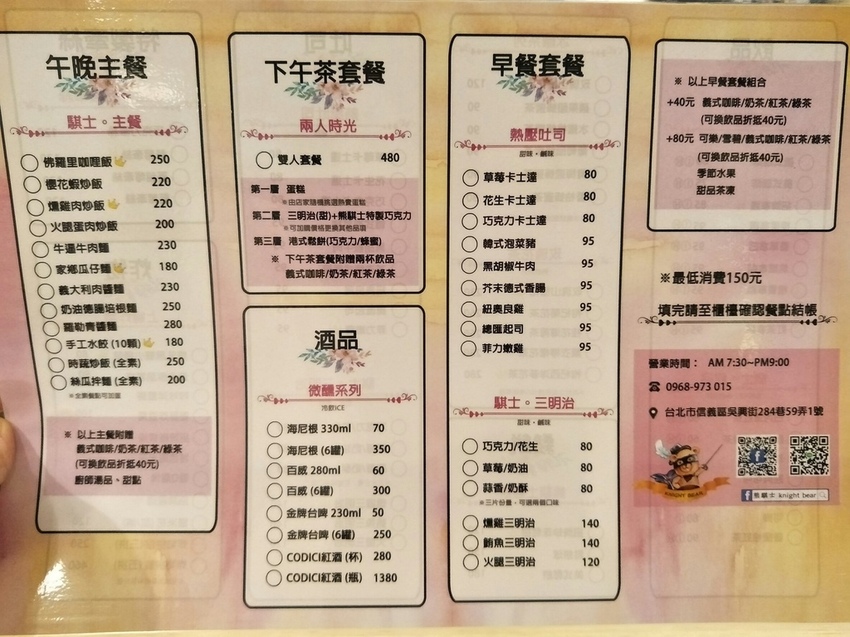 午晚主餐
騏士。主餐
佛羅里咖哩飯 250
櫻花蝦炒飯 220
燻雞肉炒飯 220
火腿蛋肉炒飯 200
牛逼牛肉麵 230
家鄉瓜仔麵 180
義大利肉醬麵 230
奶油德腸培根麵 250
羅勒青醬麵 280
手工水餃 (10顆) 180
時蔬炒飯 (全素) 250
絲瓜拌麵 (全素) 200
※全素餐點可加蛋
※ 以上主餐附贈
義式咖啡/奶茶/紅茶/綠茶
(可換飲品折抵40元)
廚師湯品、甜點
下午茶套餐
兩人時光
雙人套餐 480
第一層 蛋糕
※由店家隨機挑選熱賣蛋糕
第二層 三明治(甜)+熊騏士特製巧克力
※可加購價格更換其他品項
第三層 港式鬆餅(巧克力/蜂蜜)
※ 下午茶套餐附贈兩杯飲品
義式咖啡/奶茶/紅茶/綠茶
酒品
微醺系列
冷飲ICE
海尼根 330ml 70
海尼根 (6罐) 350
百威 280ml 60
百威 (6罐) 300
金牌台啤 230ml 50
金牌台啤 (6罐) 250
CODICI紅酒 (杯) 280
CODICI紅酒 (瓶) 1380
早餐套餐
熱壓吐司
甜味·鹹味
草莓卡士達 80
花生卡士達 80
巧克力卡士達 80
韓式泡菜豬 95
黑胡椒牛肉 95
芥末德式香腸 95
紐奧良雞 95
總匯起司 95
菲力嫩雞 95
騏士。三明治
甜味·鹹味
巧克力/花生 80
草莓/奶油 80
蒜香/奶酥 80
※三片份量，可選兩個口味
燻雞三明治 140
鮪魚三明治 140
火腿三明治 120
※ 以上早餐套餐組合
+40元 義式咖啡/奶茶/紅茶/綠茶
(可換飲品折抵40元)
+80元 可樂/雪碧/義式咖啡/紅茶/綠茶
(可換飲品折抵40元)
季節水果
甜品茶凍
※最低消費150元
填完請至櫃檯確認餐點結帳
營業時間： AM 7:30~PM9:00
0968-973 015
台北市信義區吳興街284巷59弄1號
KNIGHT BEAR
熊騏士 knight bear